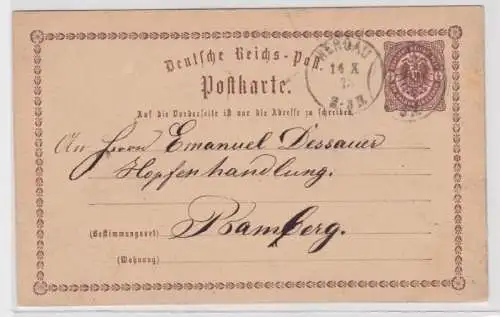 Deutsche Reichs-Post.
WERDAU
14 X
2-3N
Postkarte.
Auf die Vorderseite ist nur die Adresse zu schreiben.
An Herrn Emanuel Dessauer
Hopfenhandlung.
Bamberg.
(Bestimmungsort)
(Wohnung)